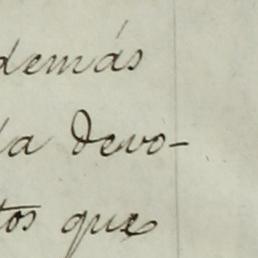 demás
la devo-
tos que